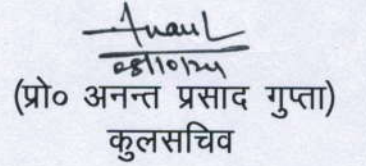 08/10/24
(प्रो० अनन्त प्रसाद गुप्ता)
कुलसचिव